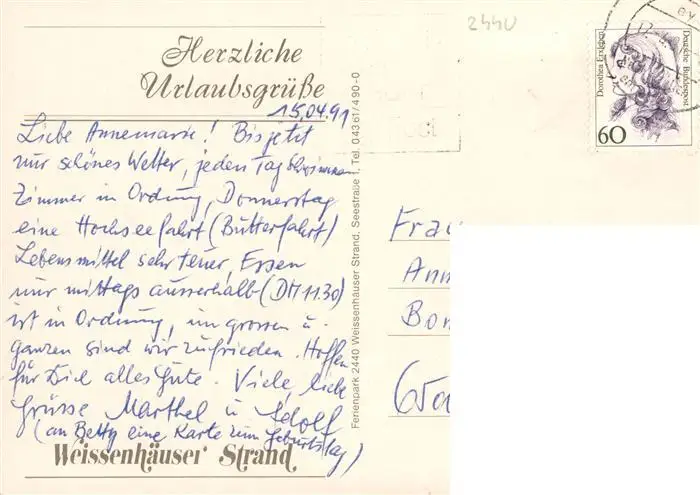 2440
Herzliche
Urlaubsgrüße
15.04.91
Liebe Annemarie! Bis jetzt
nur schönes Wetter, jeden Tag Schwimmen
Zimmer in Ordnung, Donnerstag
eine Hochseefahrt (Butterfahrt)
Lebensmittel sehr teuer, Essen
nur mittags ausserhalb (DM 11.30)
ist in Ordnung, im grossen u.
ganzen sind wir zufrieden. Hoffen
für Dich alles Gute. Viele liebe
Grüsse Marthel u. Adolf
(an Betty eine Karte zum Geburtstag)
Weissenhäuser Strand
Ferienpark 2440 Weissenhäuser Strand, Seestraße 1, Tel. 04361/490-0
Dorothea Erxleben
Deutsche Bundespost
60
Frau
Ann
Bon